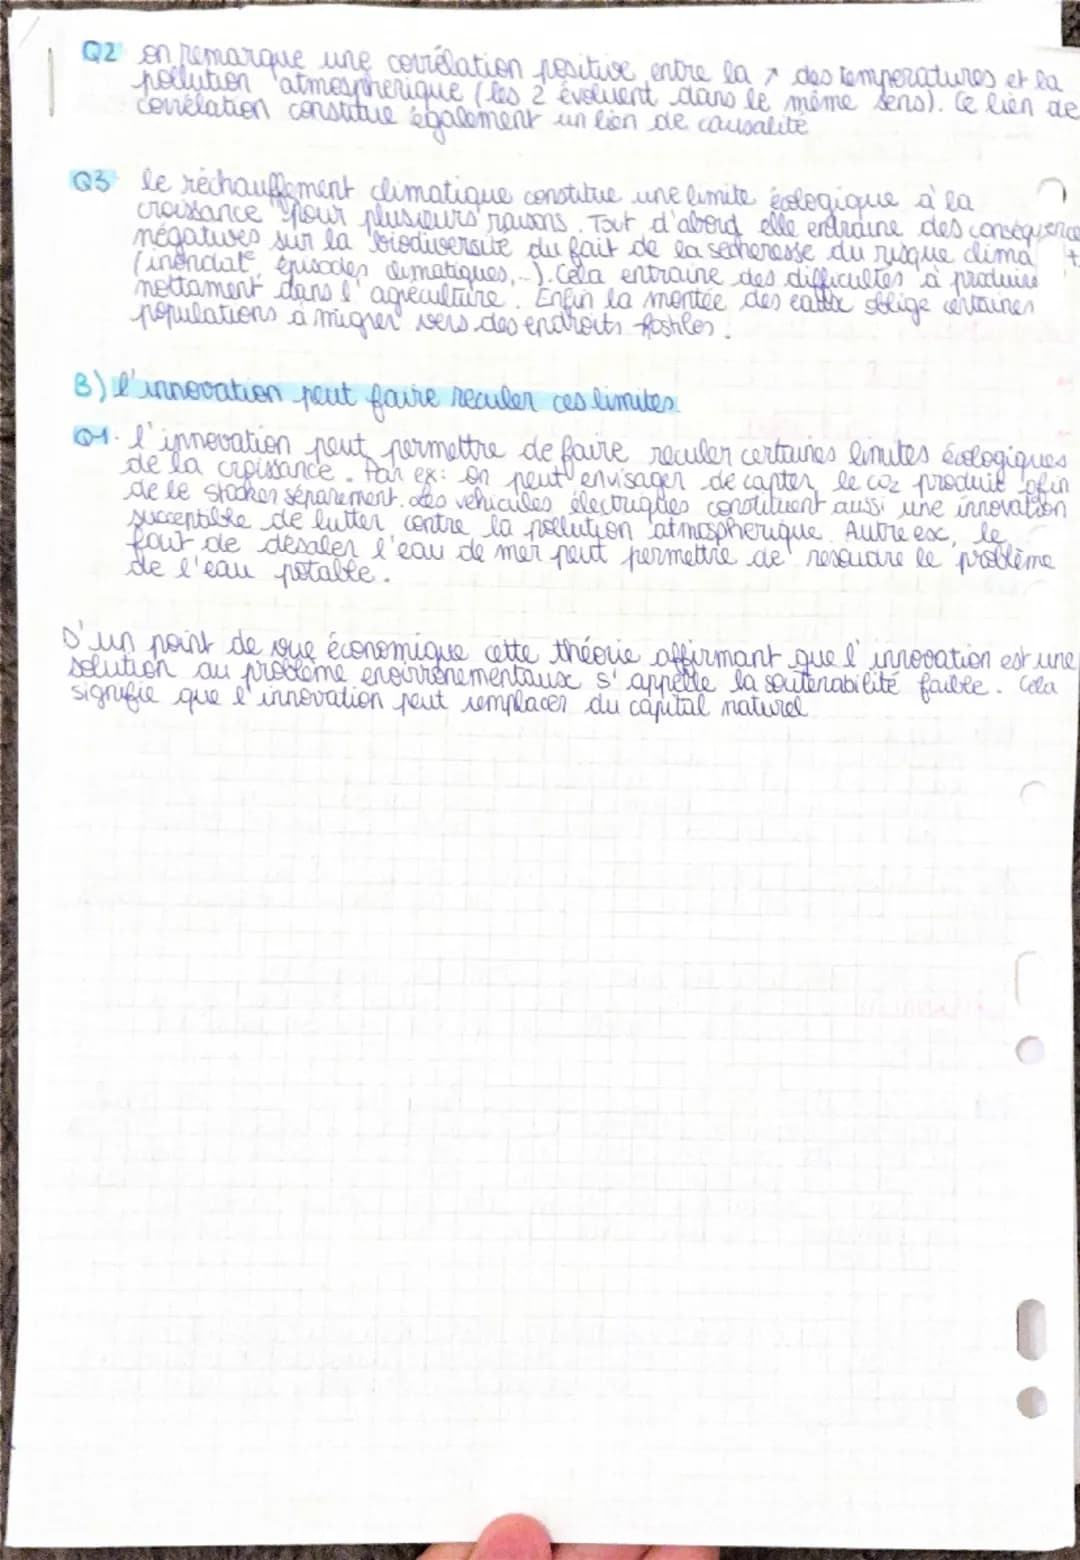 Q2 on remarque une corrélation positive entre la ↗ des temperatures et la
pollution atmospherique (les 2 évoluent dans le même sens). Ce lien de
corrélation constitue également un lien de causalité
Q3 le réchauffement climatique constitue une limite écologique à la
croissance pour plusieurs raisons. Tout d'abord elle entraine des conséquence
négatives sur la biodiversité du fait de la secheresse du risque clima +
(inondat°, épisodes climatiques,..). Cela entraine des difficultés à produire
nottament dans l'agriculture. Enfin la montée des eaux oblige certaines
populations à migrer vers des endroits.
B) l'innovation peut faire reculer ces limites.
Q1. l'innovation peut permettre de faire reculer certaines limites écologiques
de la croissance. Par ex: on peut envisager de capter le co2 produit afin
de le stocker séparement. Les vehicules électriques constituent aussi une innovation
succeptible de lutter contre la pollution atmospherique. Autre ex, le
fait de désaler l'eau de mer peut permettre de resoudre le problème
de l'eau potable.
D'un point de vue économique cette théorie affirmant que l'innovation est une
solution au problème environnementaux s'appelle la soutenabilité faible. Cela
signifie que l'innovation peut remplacer du capital naturel